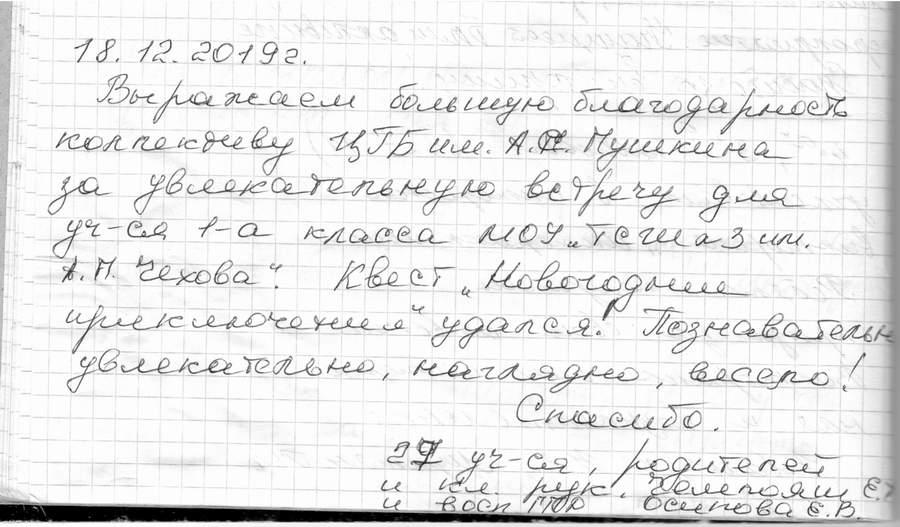 18.12.2019г.
Выражаем большую благодарность
коллективу ЦГБ им. А.С. Пушкина
за увлекательную встречу для
уч-ся 1-а класса МОУ „ТСШ№3 им.
А.П. Чехова". Квест „Новогодние
приключения" удался! Познавательн
увлекательно, наглядно, весело!
Спасибо.
27 уч-ся, родителей
и кл. рук.
и восп ГПД Осипова Е.В.